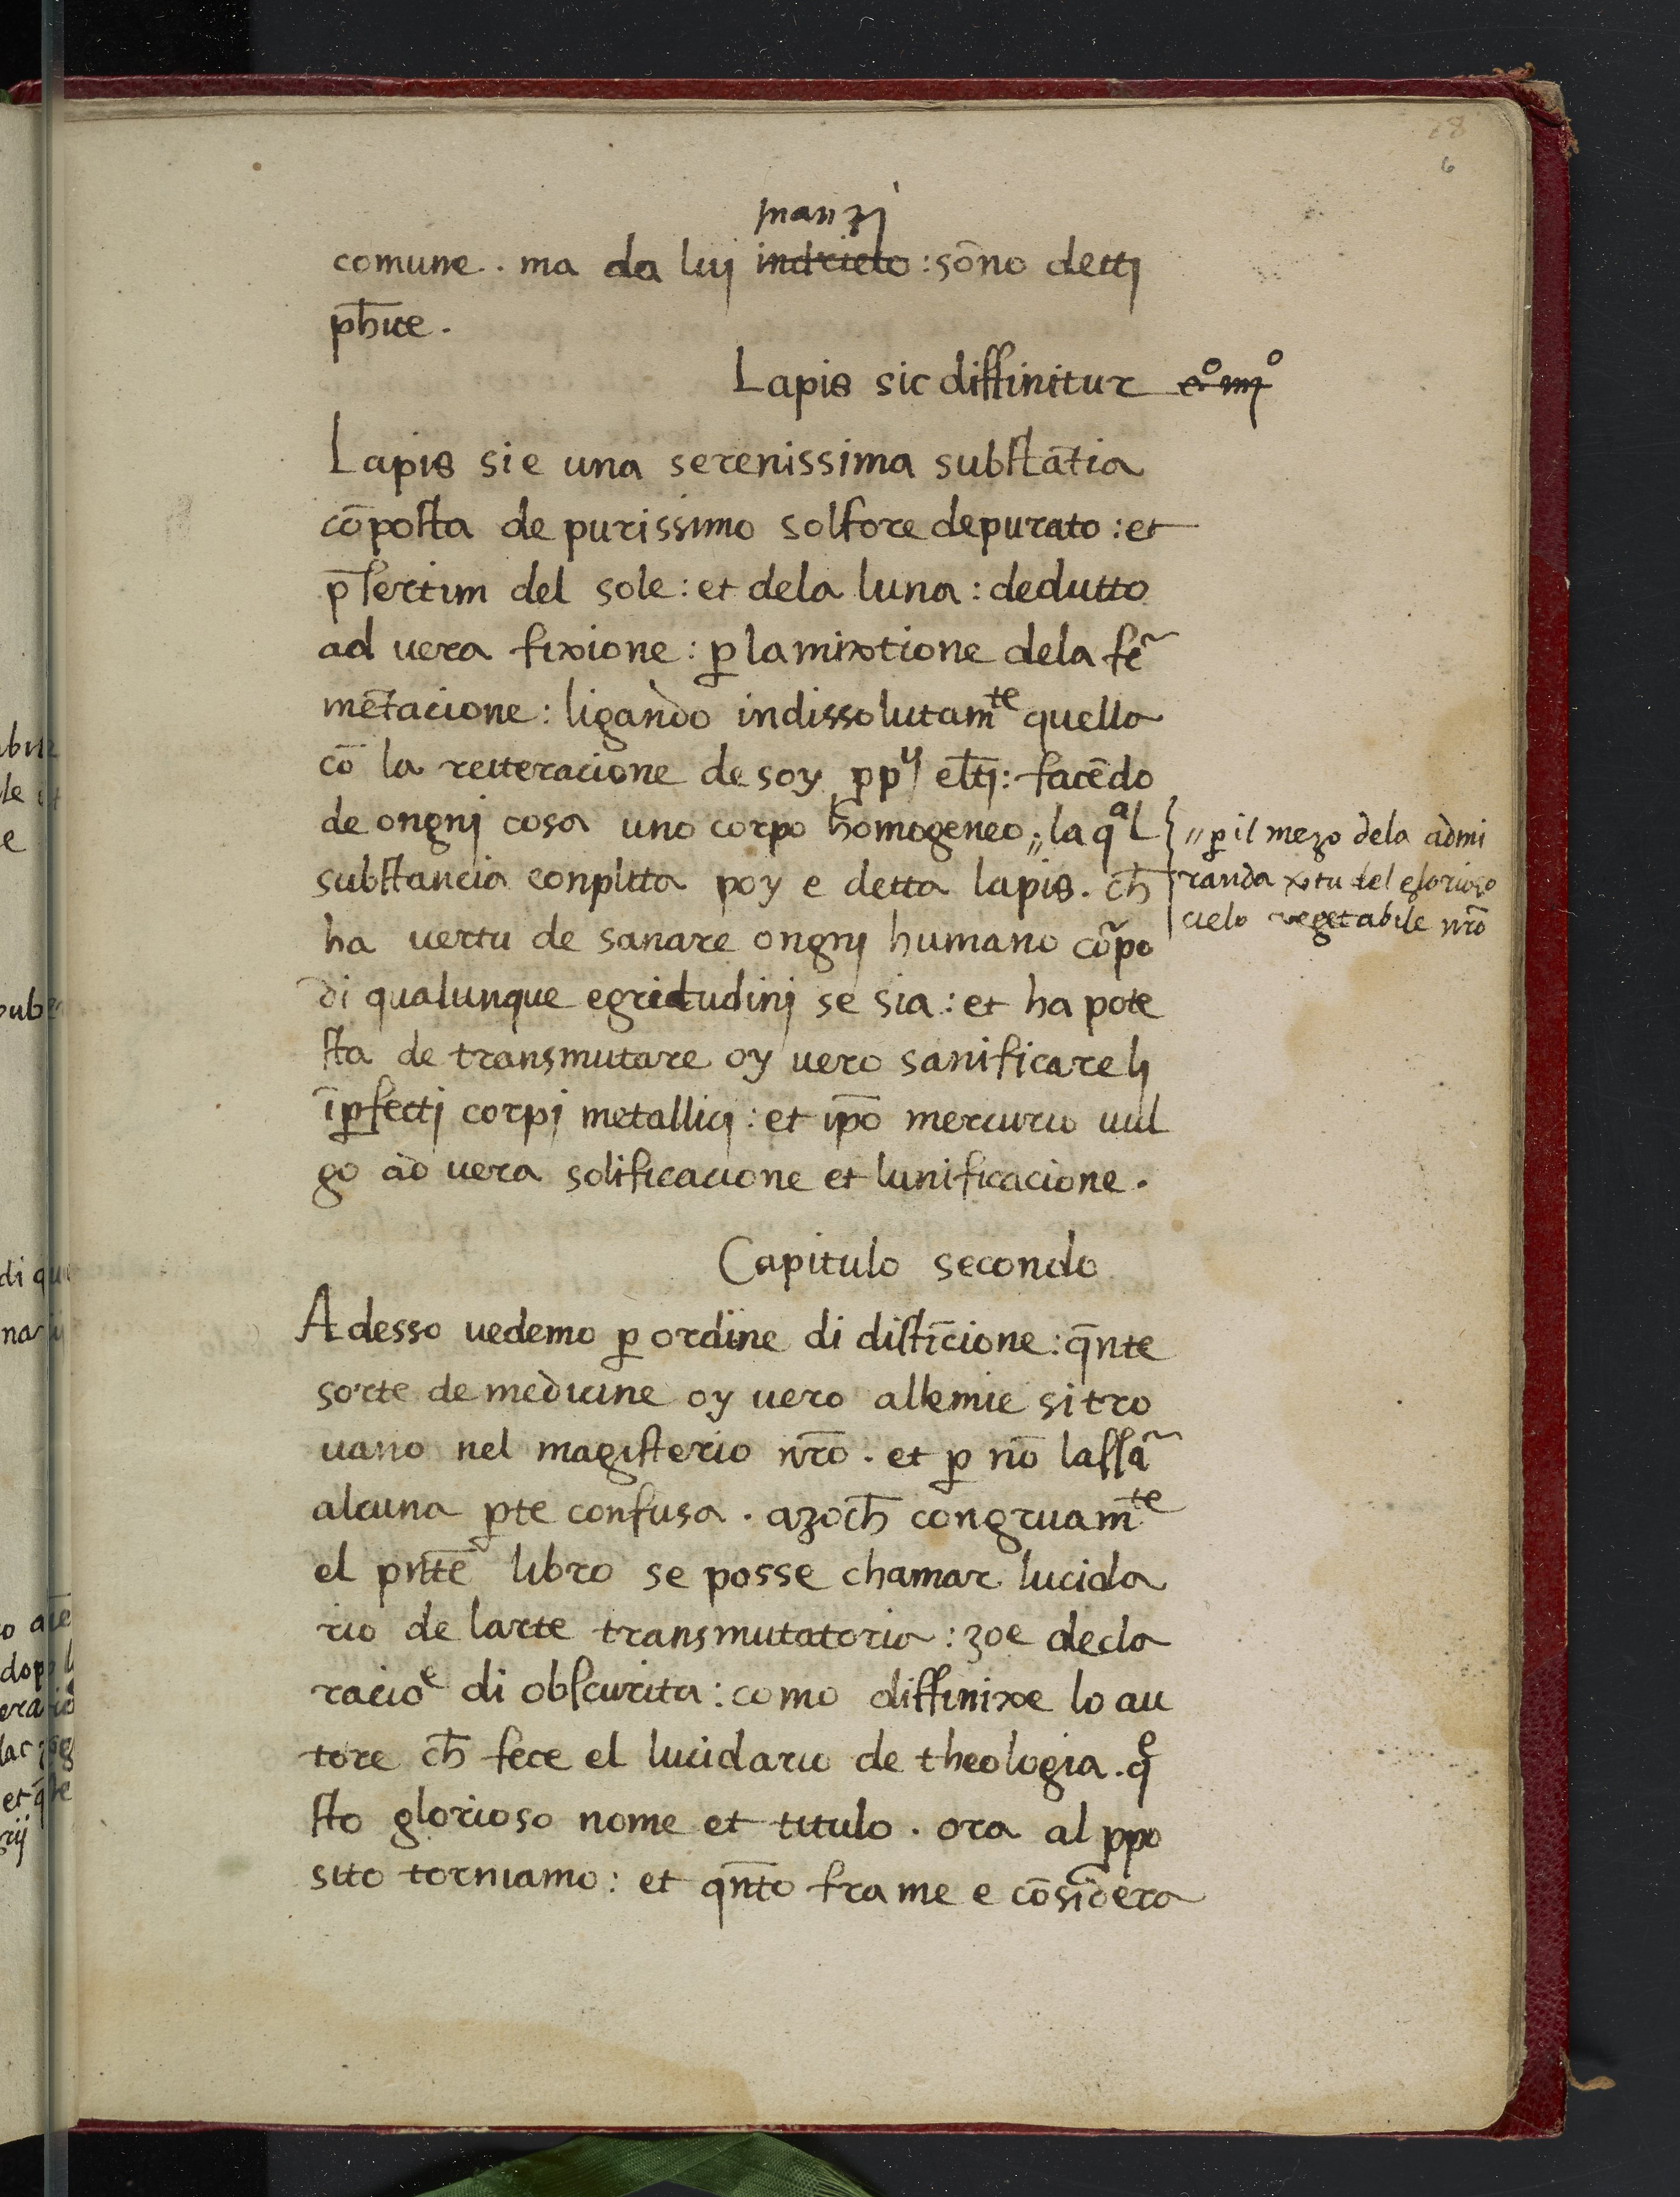 28
6
manzj
comune . ma da luj indrieto : sōno dettj
ph̄ice .
Lapis sic diffinitur
Lapis si e una serenissima substātia
cōposta de purissimo solfore depurato : et
p̄sertim del sole : et dela luna : dedutto
ad uera fixione : ꝑ la mixtione dela fe͂
mētacione : ligando indissolutamᵗᵉ quella
cō la reiteracione de soy ꝑpij eltj̄ : facēdo
de ongnj cosa uno corpo homogeneo ,, la qᵃl
substancia conplita poy e detta lapis . ch̄
ha uertu de sanare ongnj humano co͂po
di qualunque egritudinj se sia : et ha pote
sta de transmutare oy uero sanificare lj
īꝑfectj corpj metallicj : et ip̄o mercurio uul
go ad uera solificacione et lunificacione .
,, ꝑ il mezo dela admi
randa xtu del glorioso
cielo vegetabile nr̄o
Capitulo secondo
Adesso uedemo ꝑ ordine di distīcione : qn̄te
sorte de medicine oy uero alkemie si tro
uano nel magisterio nr̄o . et ꝑ nō lassa͂
alcuna ꝑte confusa . azoch̄ congruamᵗᵉ
el pn̄te libro se posse chamar lucida
rio de larte transmutatoria : zoe decla
racioᵉ di obscurita : como diffinixe lo au
tore ch̄ fece el lucidario de theologia . qᵉ
sto glorioso nome et titulo . ora al ꝓpo
sito torniamo : et qn̄to fra me e cōsidera